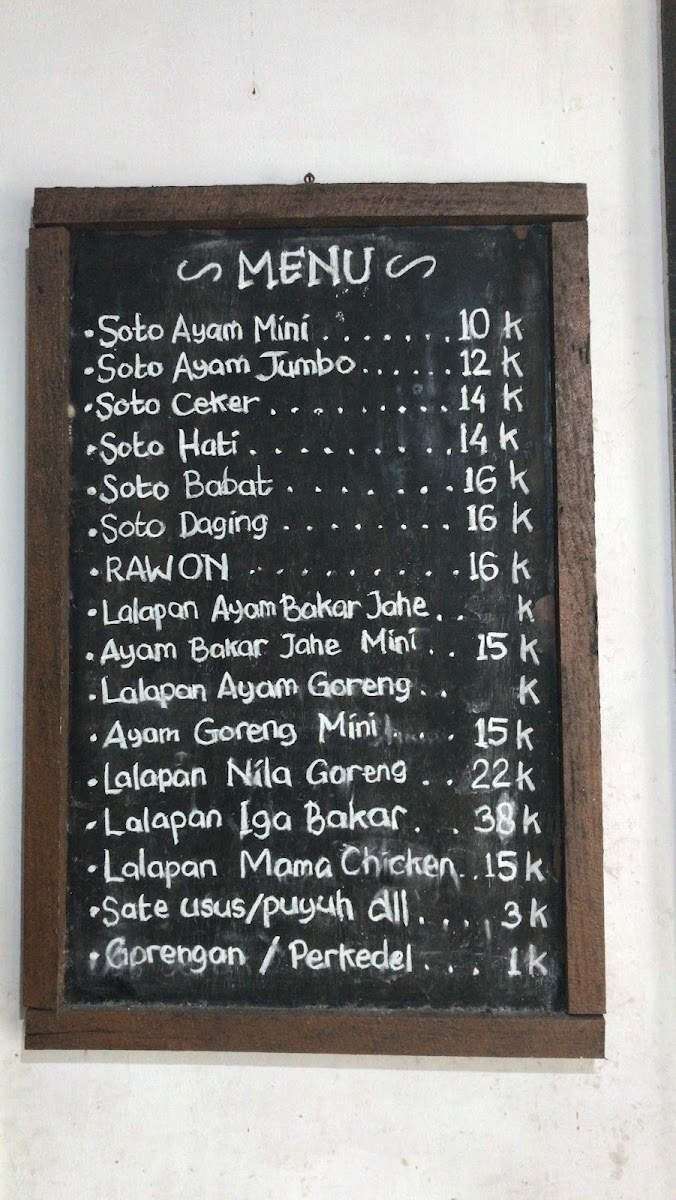 MENU
• Soto Ayam Mini . . . . . . . 10 k
• Soto Ayam Jumbo . . . . . . 12 k
• Soto Ceker . . . . . . . . . 14 k
• Soto Hati . . . . . . . . . . 14 k
• Soto Babat . . . . . . . . 16 k
• Soto Daging . . . . . . . . 16 k
• RAWON . . . . . . . . . . 16 k
• Lalapan Ayam Bakar Jahe . . k
• Ayam Bakar Jahe Mini . . 15 k
• Lalapan Ayam Goreng . . k
• Ayam Goreng Mini . . . . 15 k
• Lalapan Nila Goreng . . 22 k
• Lalapan Iga Bakar . . . 38 k
• Lalapan Mama Chicken . . 15 k
• Sate usus/puyuh dll . . . . 3 k
• Gorengan / Perkedel . . . . 1 k